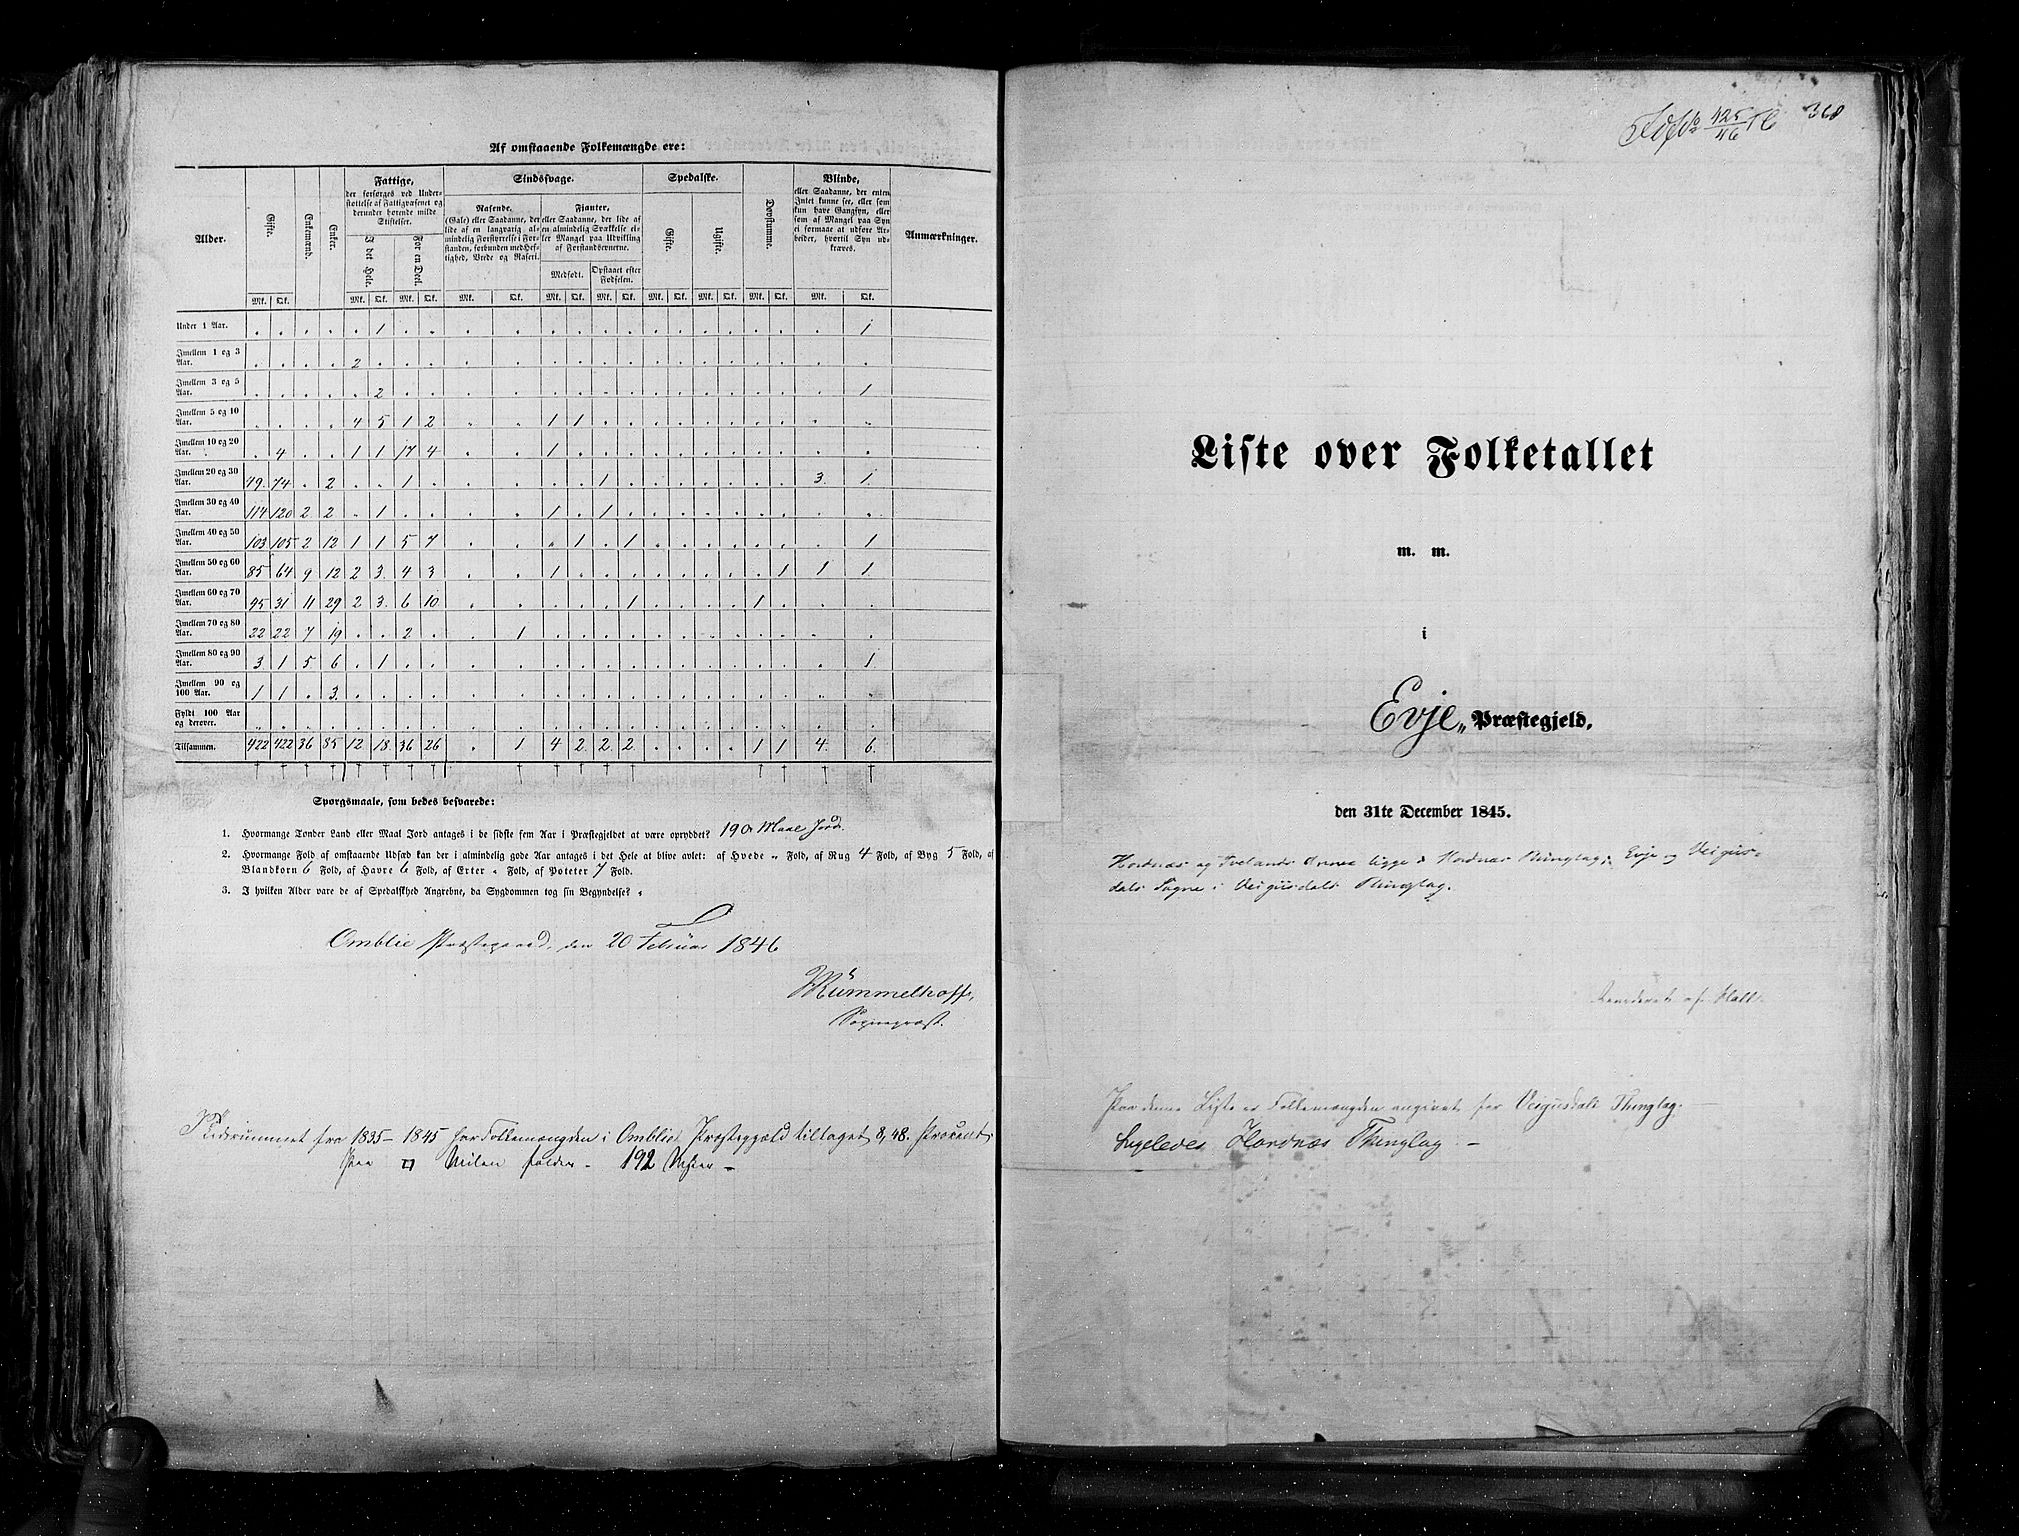 Af omstaaende Folkemængde ere:
Alder. Gifte. Enkemænd. Enker. Fattige, der forsørges ved Understøttelse af Fattigvæsenet og derunder hørende milde Stiftelser. Sindssvage. Spedalske. Døvstumme. Blinde, eller Saadanne, der enten Intet kunne see, eller som kun have Gangsyn, eller som af Mangel paa Syn ei formaae at udføre Arbeider, hvortil Syn udkræves. Anmærkninger.
I det Hele. For en Deel. Rasende, (Gale) eller Saadanne, der lide af en langvarig almindelig Forstyrrelse i Forstanden, forbunden med Heftighed, Vrede og Raseri. Fjanter, eller Saadanne, der lide af en almindelig Svækkelse eller Mangel paa Udvikling af Forstandsevnerne. Gifte. Ugifte.
Medfødt. Opstaaet efter Fødselen.
Mk. Qk. Mk. Qk. Mk. Qk. Mk. Qk. Mk. Qk. Mk. Qk. Mk. Qk. Mk. Qk. Mk. Qk. Mk. Qk.
Under 1 Aar. . . . . . 1 . . . . . . . . . . . . . . . 1
Imellem 1 og 3 Aar. . . . . 2 . . . . . . . . . . . . . . . . .
Imellem 3 og 5 Aar. . . . . . 2 . . . . . . . . . . . . . . . 1
Imellem 5 og 10 Aar. . . . . 4 5 1 2 . . 1 1 . . . . . . . . . .
Imellem 10 og 20 Aar. . 4 . . 1 1 17 4 . . 1 . . . . . . . . . . .
Imellem 20 og 30 Aar. 49. 74 . 2 . . 1 . . . . . 1 . . . . . . . 3. 1.
Imellem 30 og 40 Aar. 114 120 2 2 . 1 . . . . 1 . 1 . . . . . . . . .
Imellem 40 og 50 Aar. 103 105 2 12 1 1 5 7 . . . 1 . 1 . . . . . . . 1
Imellem 50 og 60 Aar. 85 64 9 12 2 3. 4 3 . . 1 . . . . . . . . 1 1 1.
Imellem 60 og 70 Aar. 45 31 11 29 2 3. 6 10 . . . . . 1 . . . . 1 . . .
Imellem 70 og 80 Aar. 22 22 7 19 . . 2 . . 1 . . . . . . . . . . . .
Imellem 80 og 90 Aar. 3 1 5 6 . 1 . . . . . . . . . . . . . . . 1
Imellem 90 og 100 Aar. 1 1 . 3. . . . . . . . . . . . . . . . . . .
Fyldt 100 Aar og derover. . . . . . . . . . . . . . . . . . . . . . .
Tilsammen. 422 422 36 85 12 18 36 26 . 1 4 2 2. 2. . . . . 1 1 4. 6.
Spørgsmaale, som bedes besvarede:
1. Hvormange Tønder Land eller Maal Jord antages i de sidste fem Aar i Præstegjeldet at være opryddet? 190 Maal Jord.
2. Hvormange Fold af omstaaende Udsæd kan der i almindelig gode Aar antages i det Hele at blive avlet: af Hvede „ Fold, af Rug 4 Fold, af Byg 5 Fold, af
Blandkorn 6 Fold, af Havre 6 Fold, af Erter „ Fold, af Poteter 7 Fold.
3. I hvilken Alder vare de af Spedalskhed Angrebne, da Sygdommen tog sin Begyndelse? „
Omblie Præstegaard, den 20 Februar 1846
Mummelhoff,
Sognepræst.
I Tidsrummet fra 1835-1845 har Folkemængden i Omblie Præstegjæld tiltaget 8,48. Procent.
Paa □ Milen falder - 192 Msker -
425/46 368
Liste over Folketallet
m. m.
i
Evje„ Præstegjeld,
den 31te December 1845.
Hordnæs og Ivelands Sogne ligge i Hordnæs Thinglag; Evje og Veigus-
dals Sogne i Veigusdals Thinglag.
Revideret af Holt.
Paa denne Liste er Folkemængden angivet for Veigusdals Thinglag. -
Ligeledes Hordnæs Thinglag -